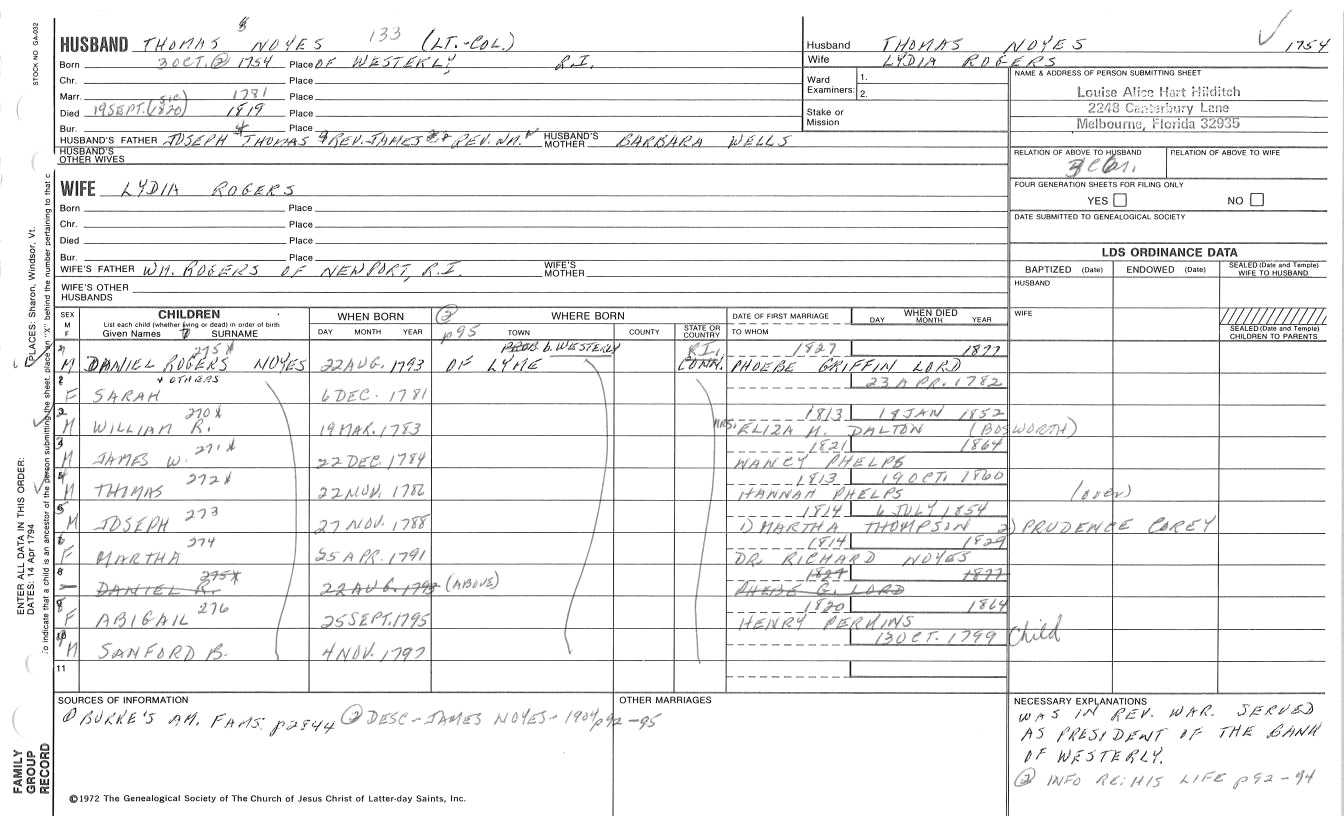 STOCK NO GA-032
HUSBAND THOMAS 8 NOYES 133 (LT.-COL.)
Born 3 OCT. ② 1754 Place OF WESTERLY, R.I.
Chr. Place
Marr. 1781 Place
Died 19 SEPT. (SIC) (1820) 1819 Place
Bur. Place
HUSBAND'S FATHER JOSEPH THOMAS REV. JAMES REV. WM. HUSBAND'S MOTHER BARBARA WELLS
HUSBAND'S OTHER WIVES
Husband THOMAS NOYES 1754
Wife LYDIA ROGERS
Ward Examiners: 1.
2.
Stake or Mission
NAME & ADDRESS OF PERSON SUBMITTING SHEET
Louise Alice Hart Hilditch
2248 Canterbury Lane
Melbourne, Florida 32935
RELATION OF ABOVE TO HUSBAND RELATION OF ABOVE TO WIFE
FOUR GENERATION SHEETS FOR FILING ONLY
YES NO
DATE SUBMITTED TO GENEALOGICAL SOCIETY
WIFE LYDIA ROGERS
Born Place
Chr. Place
Died Place
Bur. Place
WIFE'S FATHER WM. ROGERS OF NEWPORT, R.I. WIFE'S MOTHER
WIFE'S OTHER HUSBANDS
LDS ORDINANCE DATA
BAPTIZED (Date) ENDOWED (Date) SEALED (Date and Temple) WIFE TO HUSBAND
HUSBAND
WIFE
SEALED (Date and Temple) CHILDREN TO PARENTS
SEX M F CHILDREN
List each child (whether living or dead) in order of birth
Given Names SURNAME
WHEN BORN DAY MONTH YEAR
② p95
WHERE BORN TOWN COUNTY STATE OR COUNTRY
DATE OF FIRST MARRIAGE TO WHOM
WHEN DIED DAY MONTH YEAR
275X PROB. b. WESTERLY R.I. 1827 1877
M DANIEL ROGERS NOYES 22 AUG. 1793 OF LYME CONN. PHOEBE GRIFFIN LORD
+ OTHERS 23 APR. 1782
F SARAH 6 DEC. 1781
2 270X 1813 18 JAN 1852
M WILLIAM R. 19 MAR. 1783 MRS. ELIZA M. DALTON (BOSWORTH)
3 271X 1821 1864
M JAMES W. 22 DEC. 1784 NANCY PHELPS
4 272X 1813 19 OCT. 1860
M THOMAS 22 NOV. 1786 HANNAH PHELPS (over)
5 273 1814 6 JULY 1854
M JOSEPH 27 NOV. 1788 1) MARTHA THOMPSON 2) PRUDENCE COREY
6 274 1814 1829
F MARTHA 25 APR. 1791 DR. RICHARD NOYES
8 275X 1827 1877
DANIEL R. 22 AUG. 1793 (ABOVE) PHEBE G. LORD
9 276 1820 1864
F ABIGAIL 25 SEPT. 1795 HENRY PERKINS
10 13 OCT. 1799 Child
M SANFORD B. 4 NOV. 1797
11
SOURCES OF INFORMATION
① BURKE'S AM. FAMS. p2844 ② DESC-JAMES NOYES-1904 p92-95
OTHER MARRIAGES
NECESSARY EXPLANATIONS
WAS IN REV. WAR. SERVED
AS PRESIDENT OF THE BANK
OF WESTERLY.
② INFO RE: HIS LIFE p92-94
©1972 The Genealogical Society of The Church of Jesus Christ of Latter-day Saints, Inc.
FAMILY GROUP RECORD
ENTER ALL DATA IN THIS ORDER:
DATES: 14 Apr 1794
PLACES: Sharon, Windsor, Vt.
To indicate that a child is an ancestor of the person submitting the sheet, place an "X" behind the number pertaining to that c